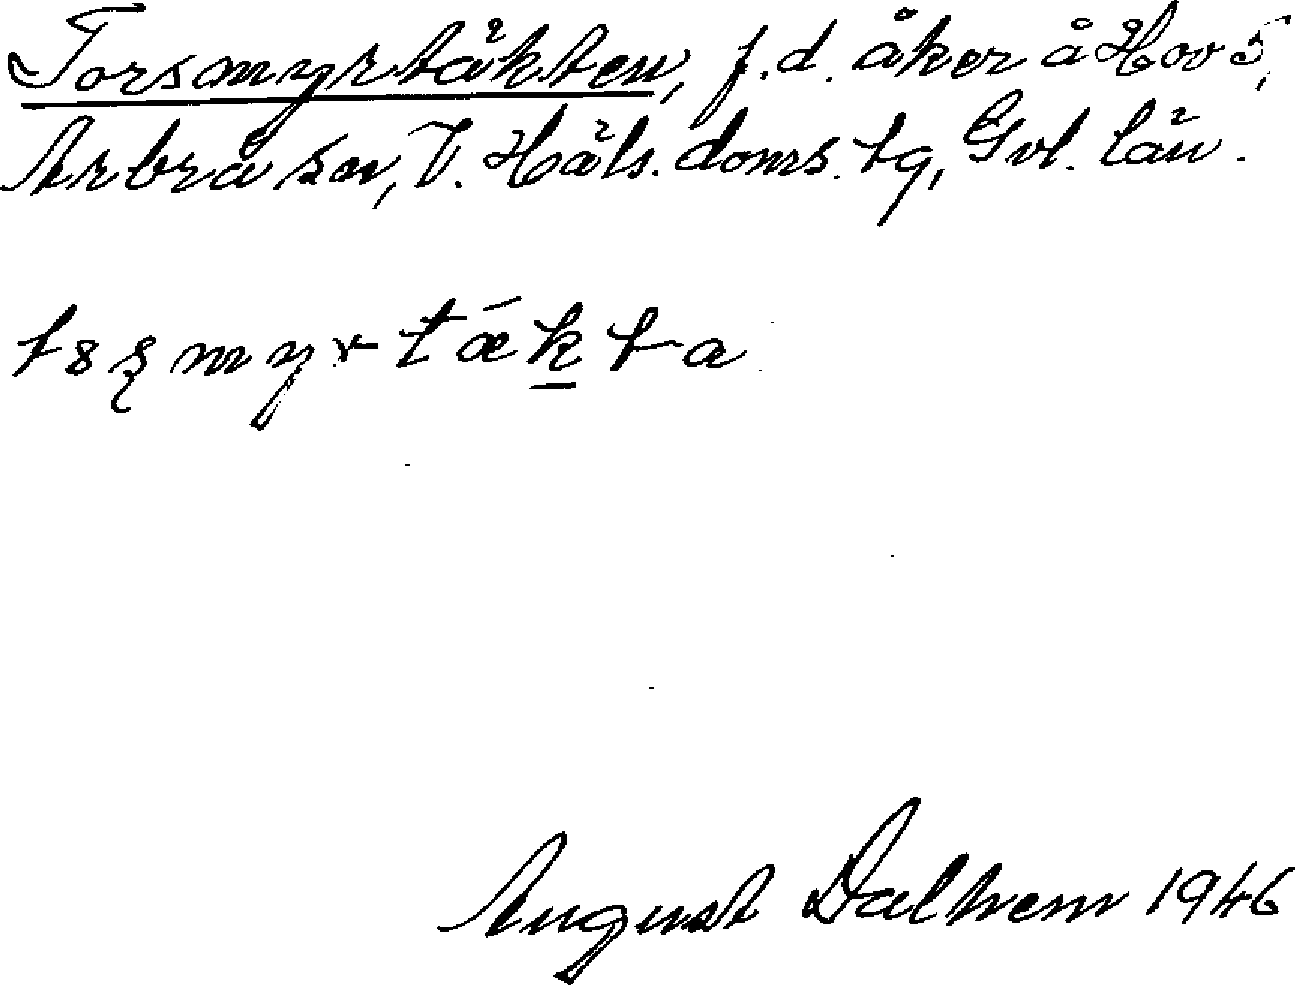 Torsmyrtäkten, f.d. åker å Hov 5,
Arbrå sn, V. Häls. doms. tg, Gvl. län.
tȣʂmyrtǽk̲ta
August Dalhem 1946